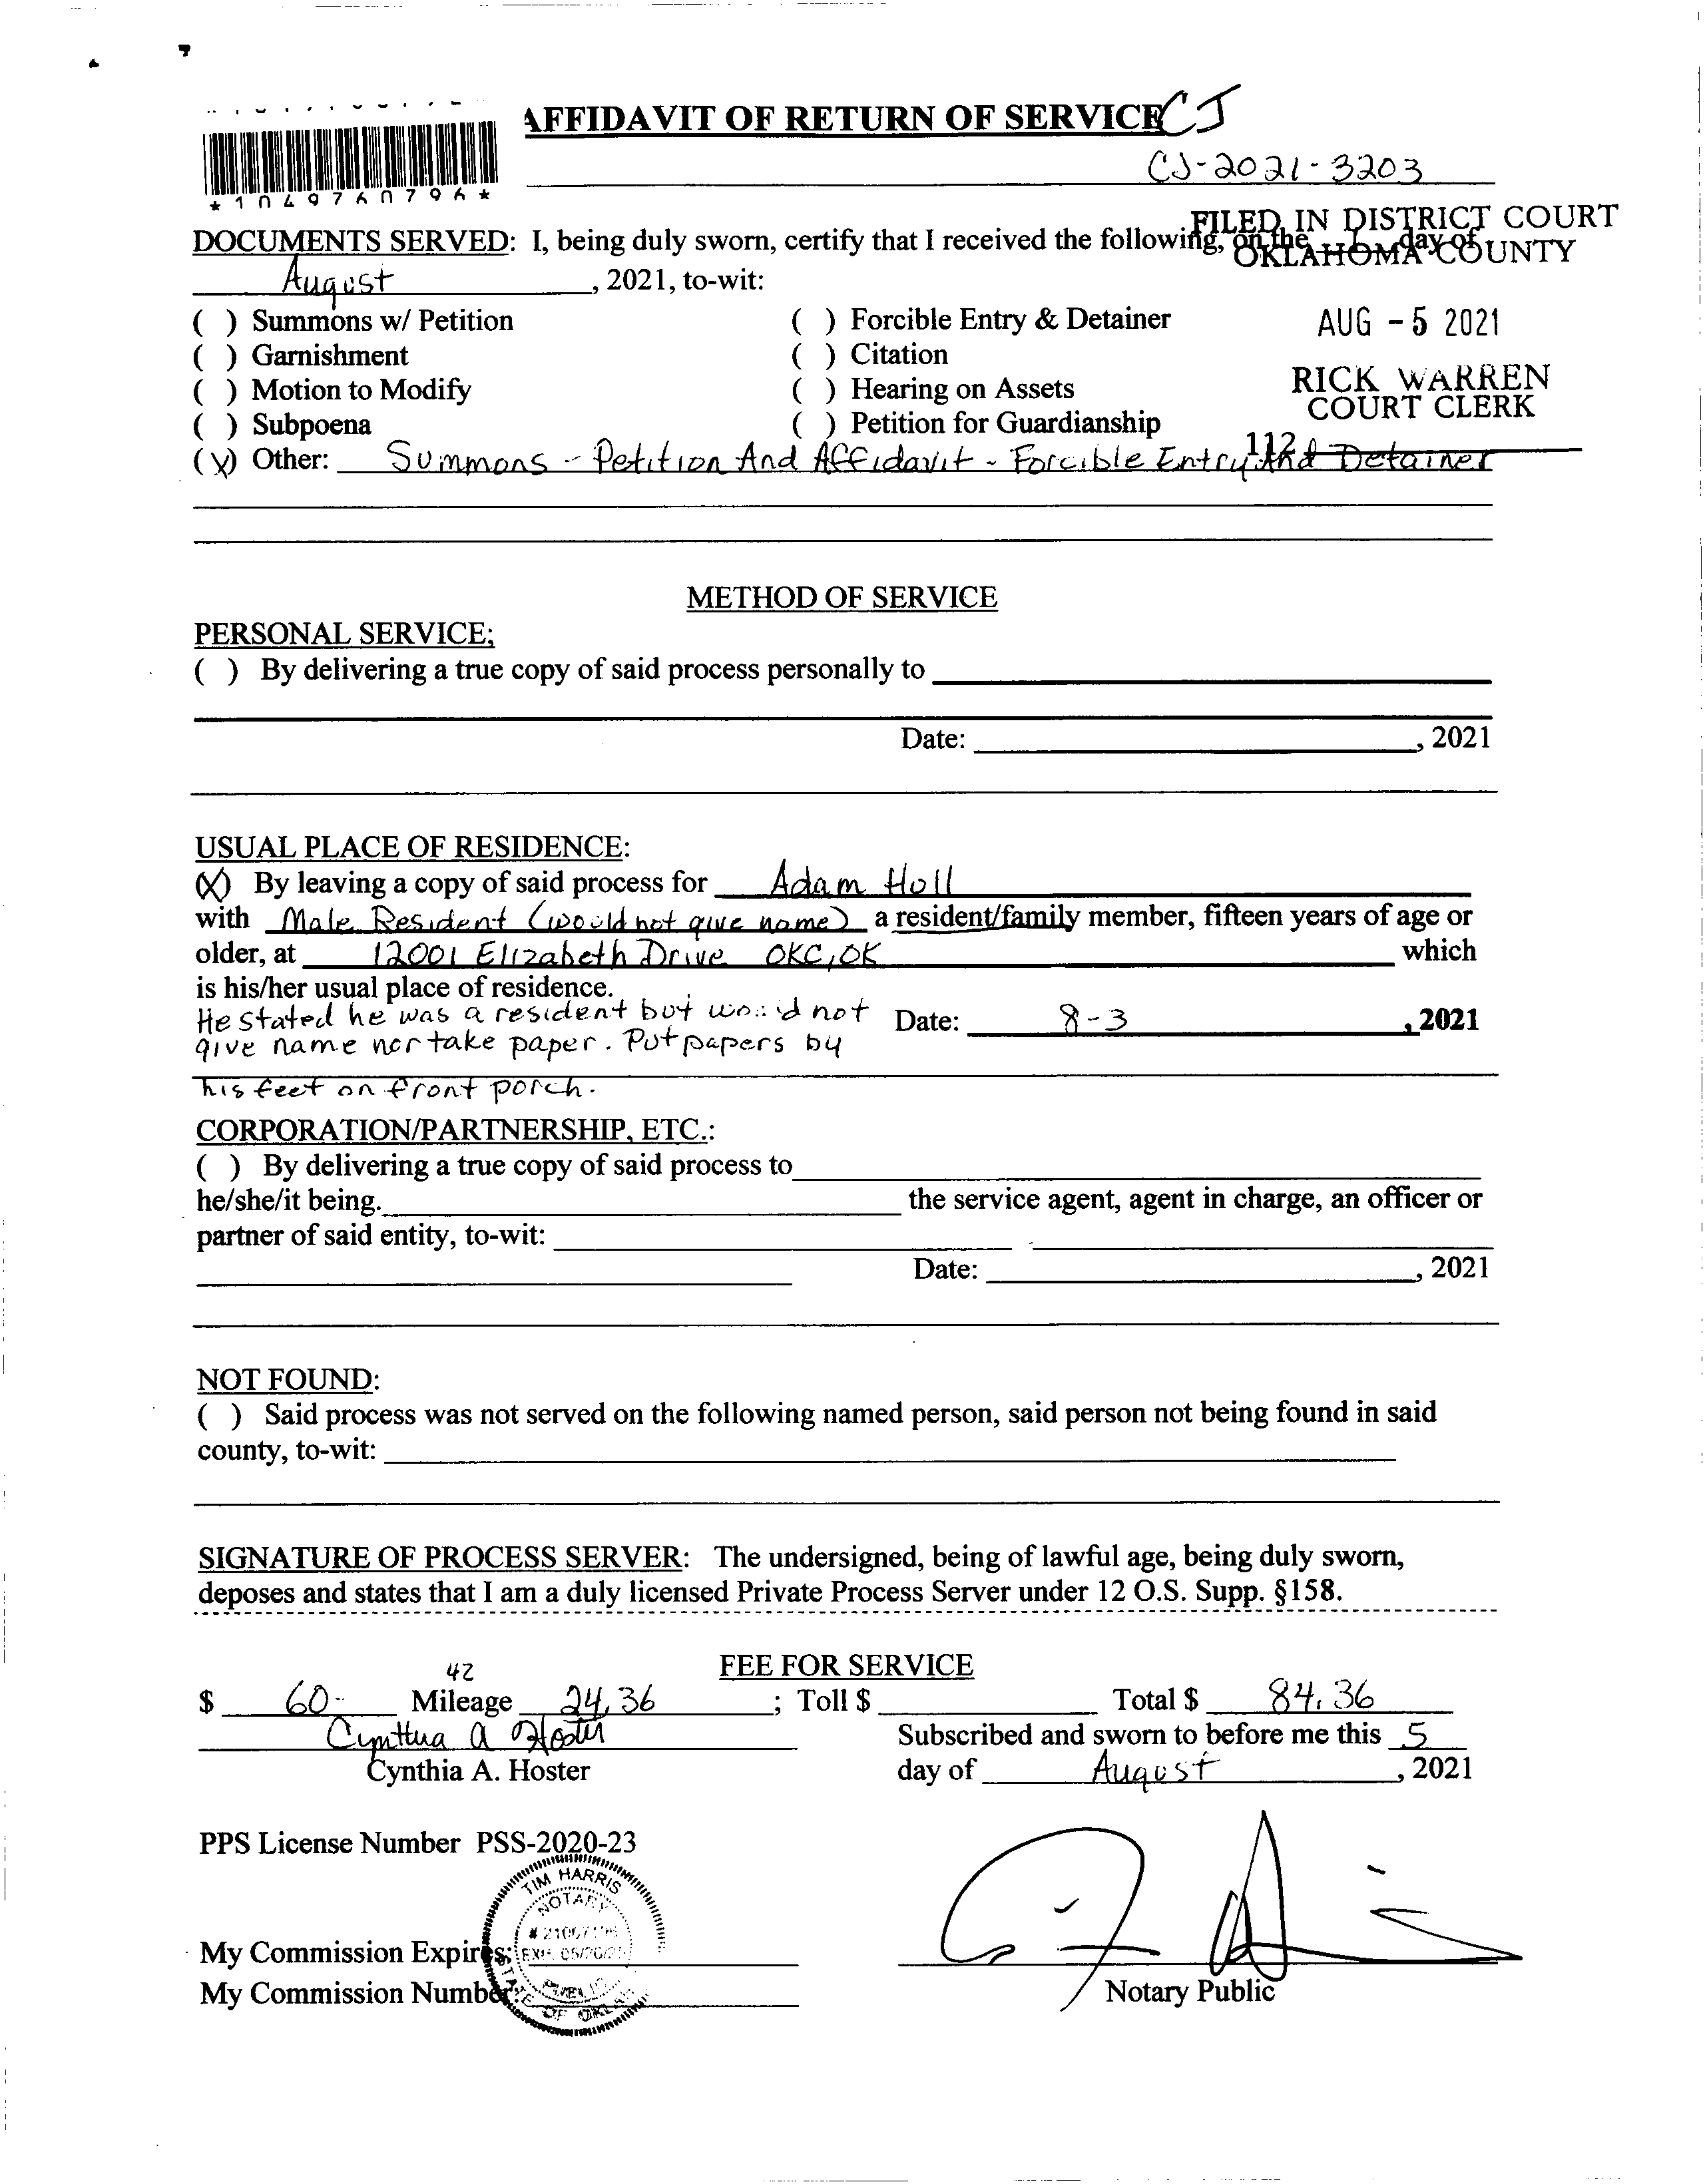 AFFIDAVIT OF RETURN OF SERVICE CJ
CJ-2021-3203
*1049760796*
FILED IN DISTRICT COURT
OKLAHOMA COUNTY
DOCUMENTS SERVED: I, being duly sworn, certify that I received the following, on the day of
August, 2021, to-wit:
( ) Summons w/ Petition ( ) Forcible Entry & Detainer
AUG -5 2021
( ) Garnishment ( ) Citation
( ) Motion to Modify ( ) Hearing on Assets
RICK WARREN
COURT CLERK
( ) Subpoena ( ) Petition for Guardianship
112
(X) Other: Summons - Petition And Affidavit - Forcible Entry And Detainer
METHOD OF SERVICE
PERSONAL SERVICE;
( ) By delivering a true copy of said process personally to
Date: , 2021
USUAL PLACE OF RESIDENCE:
(X) By leaving a copy of said process for Adam Holl
with Male Resident (would not give name) a resident/family member, fifteen years of age or
older, at 12001 Elizabeth Drive OKC, OK which
is his/her usual place of residence.
He stated he was a resident but would not
Date: 8-3, 2021
give name nor take paper. Put papers by
his feet on front porch.
CORPORATION/PARTNERSHIP, ETC.:
( ) By delivering a true copy of said process to
he/she/it being. the service agent, agent in charge, an officer or
partner of said entity, to-wit:
Date: , 2021
NOT FOUND:
( ) Said process was not served on the following named person, said person not being found in said
county, to-wit:
SIGNATURE OF PROCESS SERVER: The undersigned, being of lawful age, being duly sworn,
deposes and states that I am a duly licensed Private Process Server under 12 O.S. Supp. §158.
FEE FOR SERVICE
42
$ 60- Mileage 24.36 ; Toll $ Total $ 84.36
Cynthia A Hoster
Subscribed and sworn to before me this 5
Cynthia A. Hoster
day of August, 2021
PPS License Number PSS-2020-23
TIM HARRIS
NOTARY
PUBLIC
STATE OF
My Commission Expires:
My Commission Number:
Notary Public